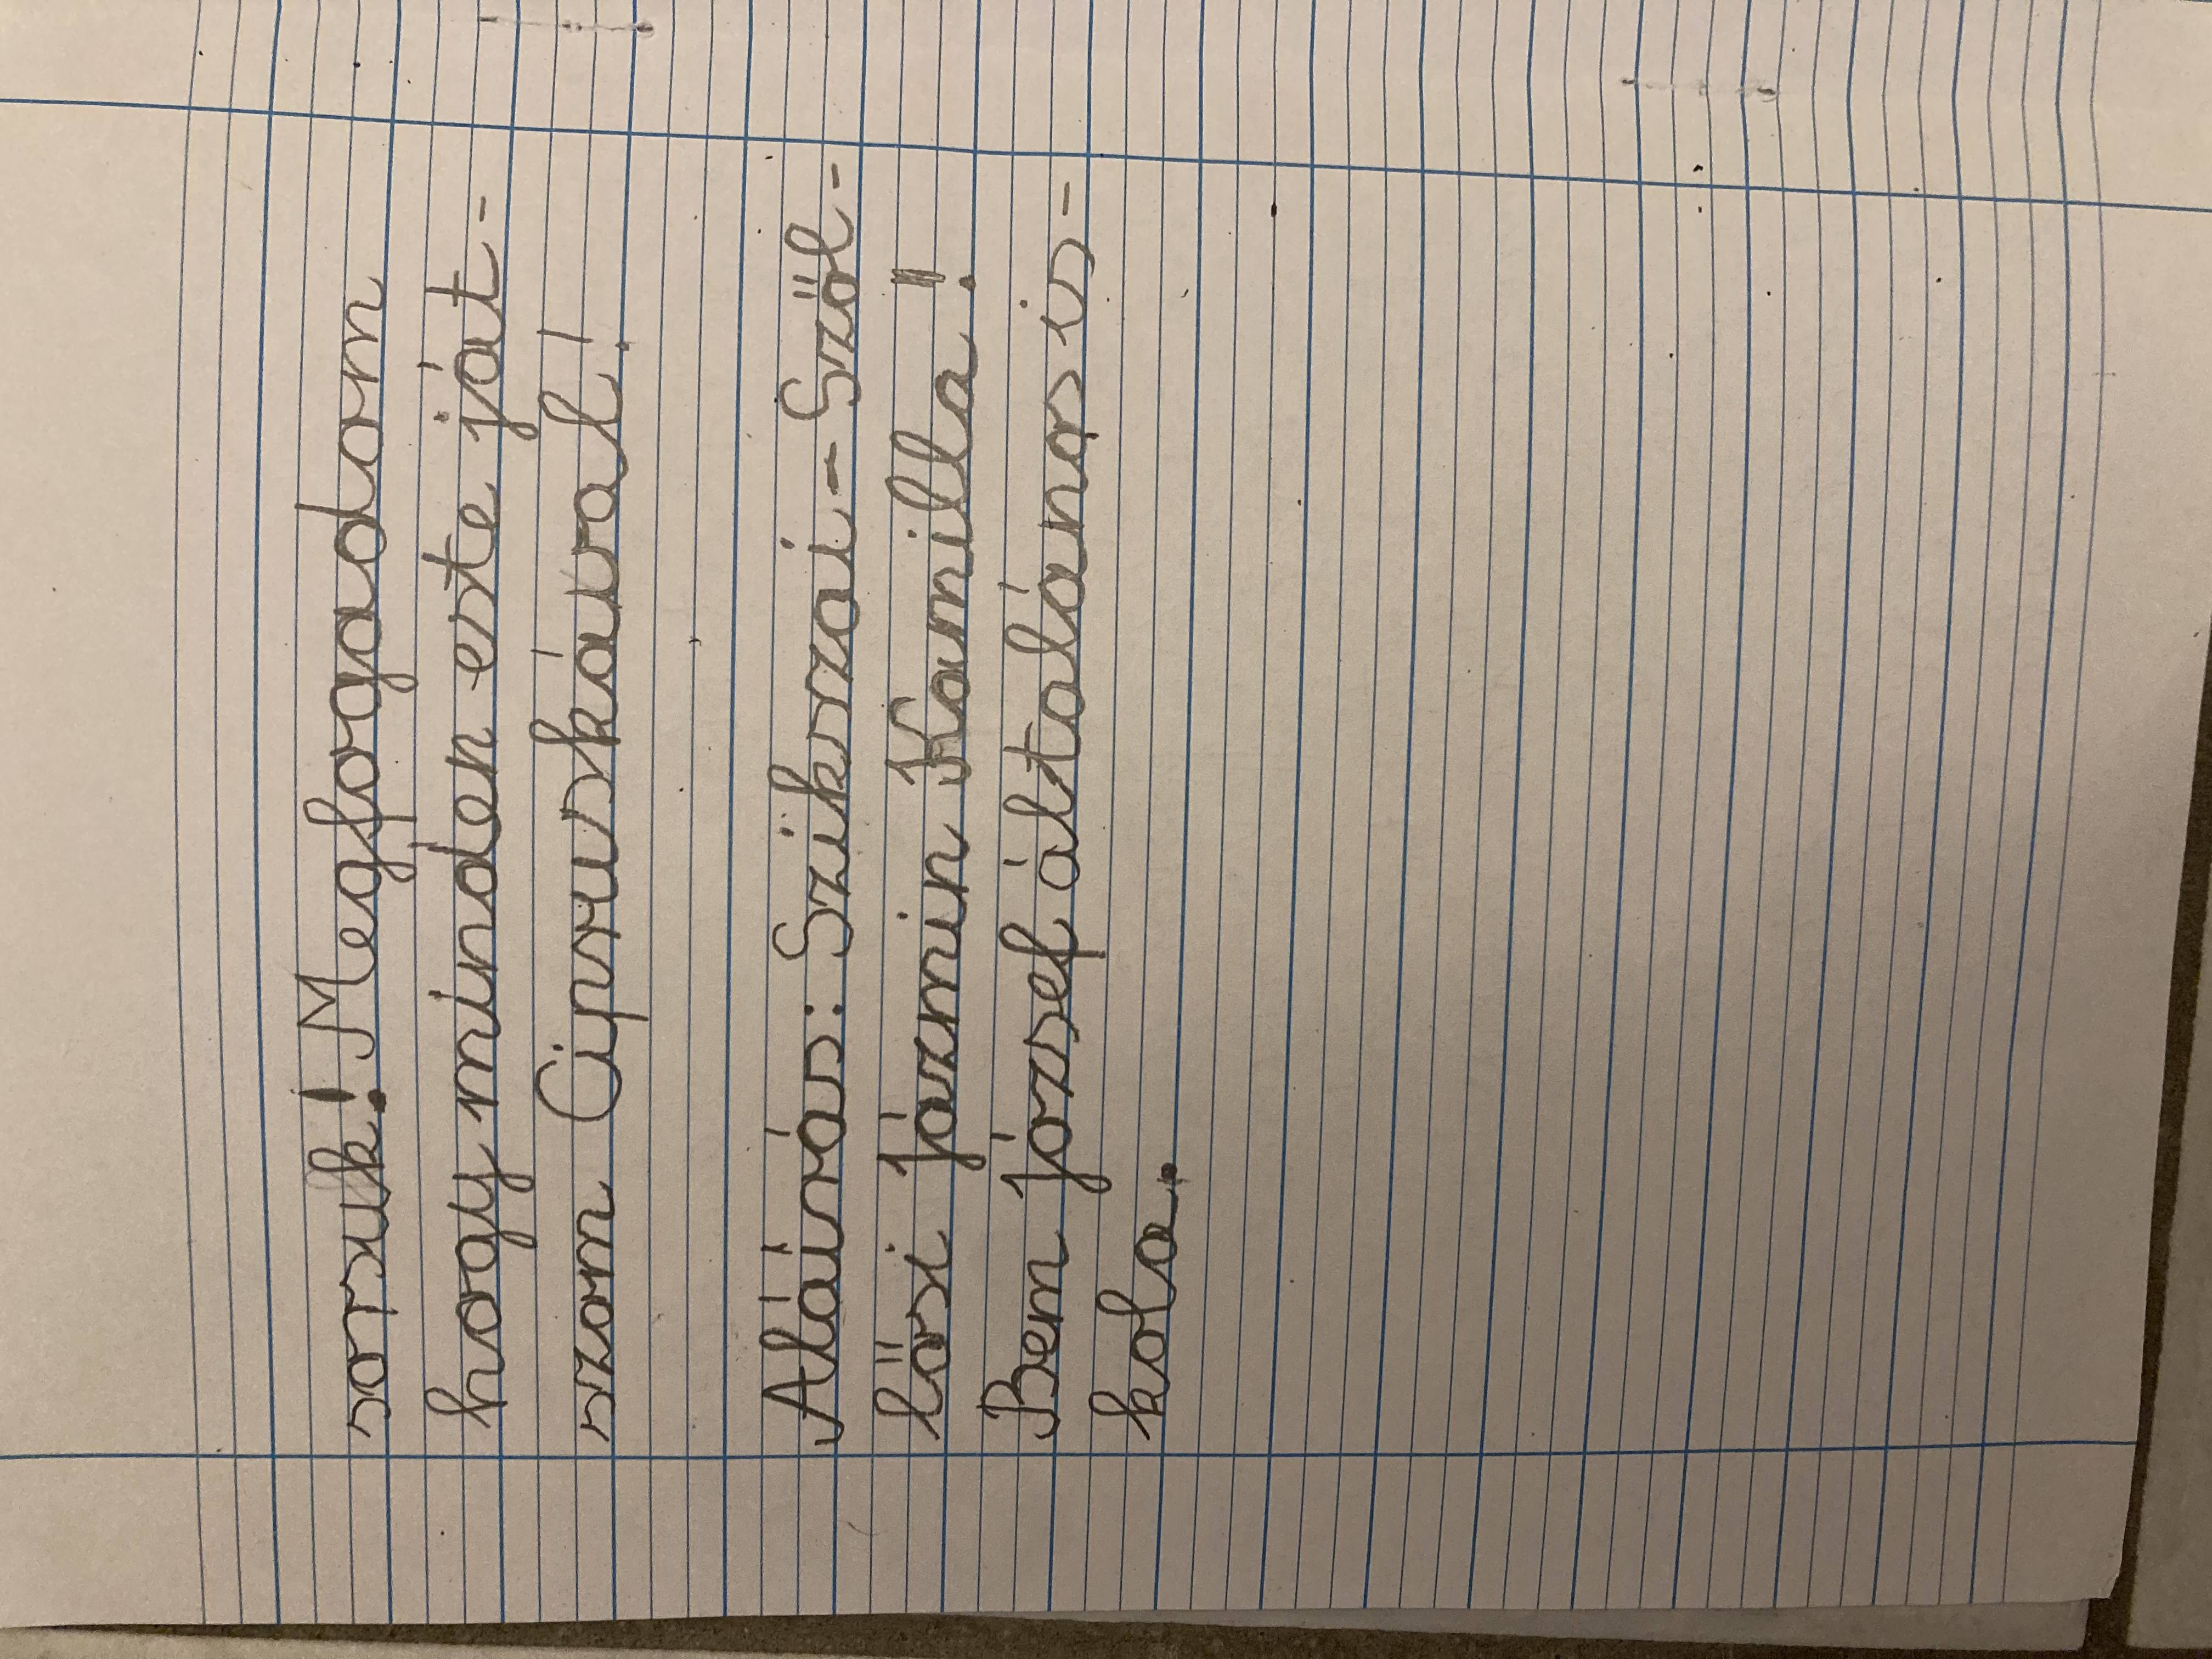 sorsuk! Megfogadom
hogy minden este ját-
szom Cipruskával!
Aláírás: Szikszai-Szől-
lősi jázmin Kamilla!
Bem józsef általános is-
kola.